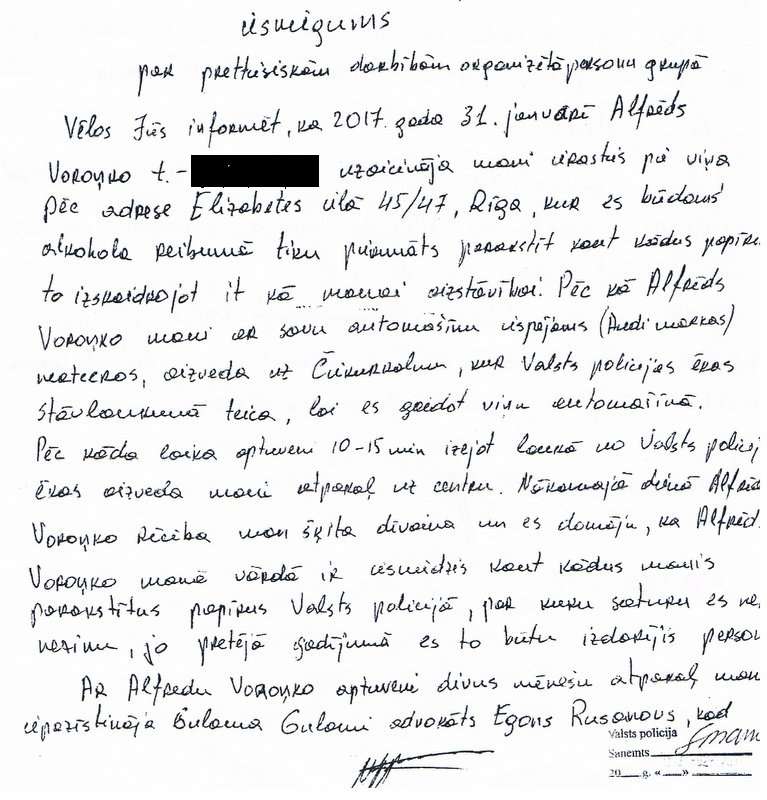 iesniegums
par prettiesiskām darbībām organizētā personu grupā
Vēlos Jūs informēt, ka 2017. gada 31. janvārī Alfrēds
Voroņko t. - uzaicināja mani ierasties pie viņa
pēc adrese Elizabetes ielā 45/47, Rīga, kur es būdams
alkohola reibumā tiku piemānīts parakstīt kaut kādus papīru
to izskaidrojot it kā manai aizstāvībai. Pēc kā Alfrēds
Voroņko mani ar savu automašīnu iespējams (Audi markas)
, aizveda uz Čiekurkalnu, kur Valsts policijas ēkas
stāvlaukumā teica, lai es gaidot viņu automašīnā.
Pēc kāda laika aptuveni 10-15 min izejot laukā no Valsts policij
ēkas aizveda mani atpakaļ uz centru. Nākamajā dienā Alfrēd
Voroņko rīcība man šķita dīvaina un es domāju, ka Alfrēds
Voroņko manā vārdā ir iesniedzis kaut kādus manis
parakstītus papīrus Valsts policijā, par kuru saturu es ne
nezinu, jo pretējā gadījumā es to būtu izdarījis person
Ar Alfredu Voroņko aptuveni divus mēnešu atpakaļ man
iepazīstināja Gulami advokāts Egons Rusanovs, kad
Valsts policija
Saņemts
20 g. « »